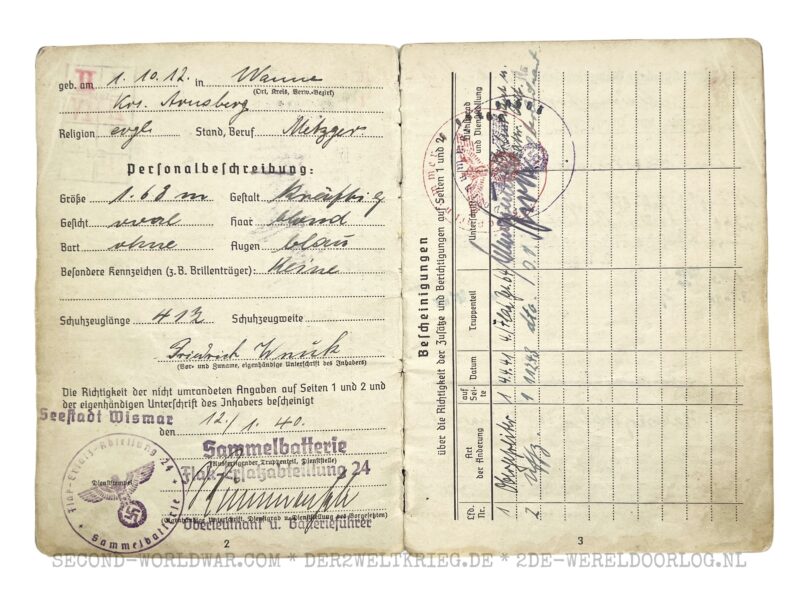 geb. am 1. 10. 12. in Wanne
(Ort, Kreis, Verw.-Bezirk)
Krs. Arnsberg
Religion evgl. Stand, Beruf Metzger
Personalbeschreibung:
Größe 1.63 m Gestalt kräftig
Gesicht oval Haar blond
Bart ohne Augen blau
Besondere Kennzeichen (z. B. Brillenträger): Keine
Schuhzeuglänge 41½ Schuhzeugweite
Friedrich Wnuk
(Vor- und Zuname, eigenhändige Unterschrift des Inhabers)
Die Richtigkeit der nicht umrandeten Angaben auf Seiten 1 und 2 und
der eigenhändigen Unterschrift des Inhabers bescheinigt
Seestadt Wismar
den 12./1. 40.
Sammelbatterie
Flak-Ersatzabteilung 24
Flak-Ersatz-Abteilung 24
Dienststempel
Sammelbatterie
(Eigenhändige Unterschrift, Dienstgrad u. Dienststellung des Vorgesetzten)
Oberleutnant u. Batterieführer
2
Bescheinigungen
über die Richtigkeit der Zusätze und Berichtigungen auf Seiten 1 und 2
Lfd. Nr.
Art der Änderung
auf Seite
Datum
Truppenteil
Unterschrift
Dienstgrad und Dienststellung
1 1 4.4.41
2 Uffz. 1 dto.
3
SECOND-WORLDWAR.COM * DER2WELTKRIEG.DE * 2DE-WERELDOORLOG.NL